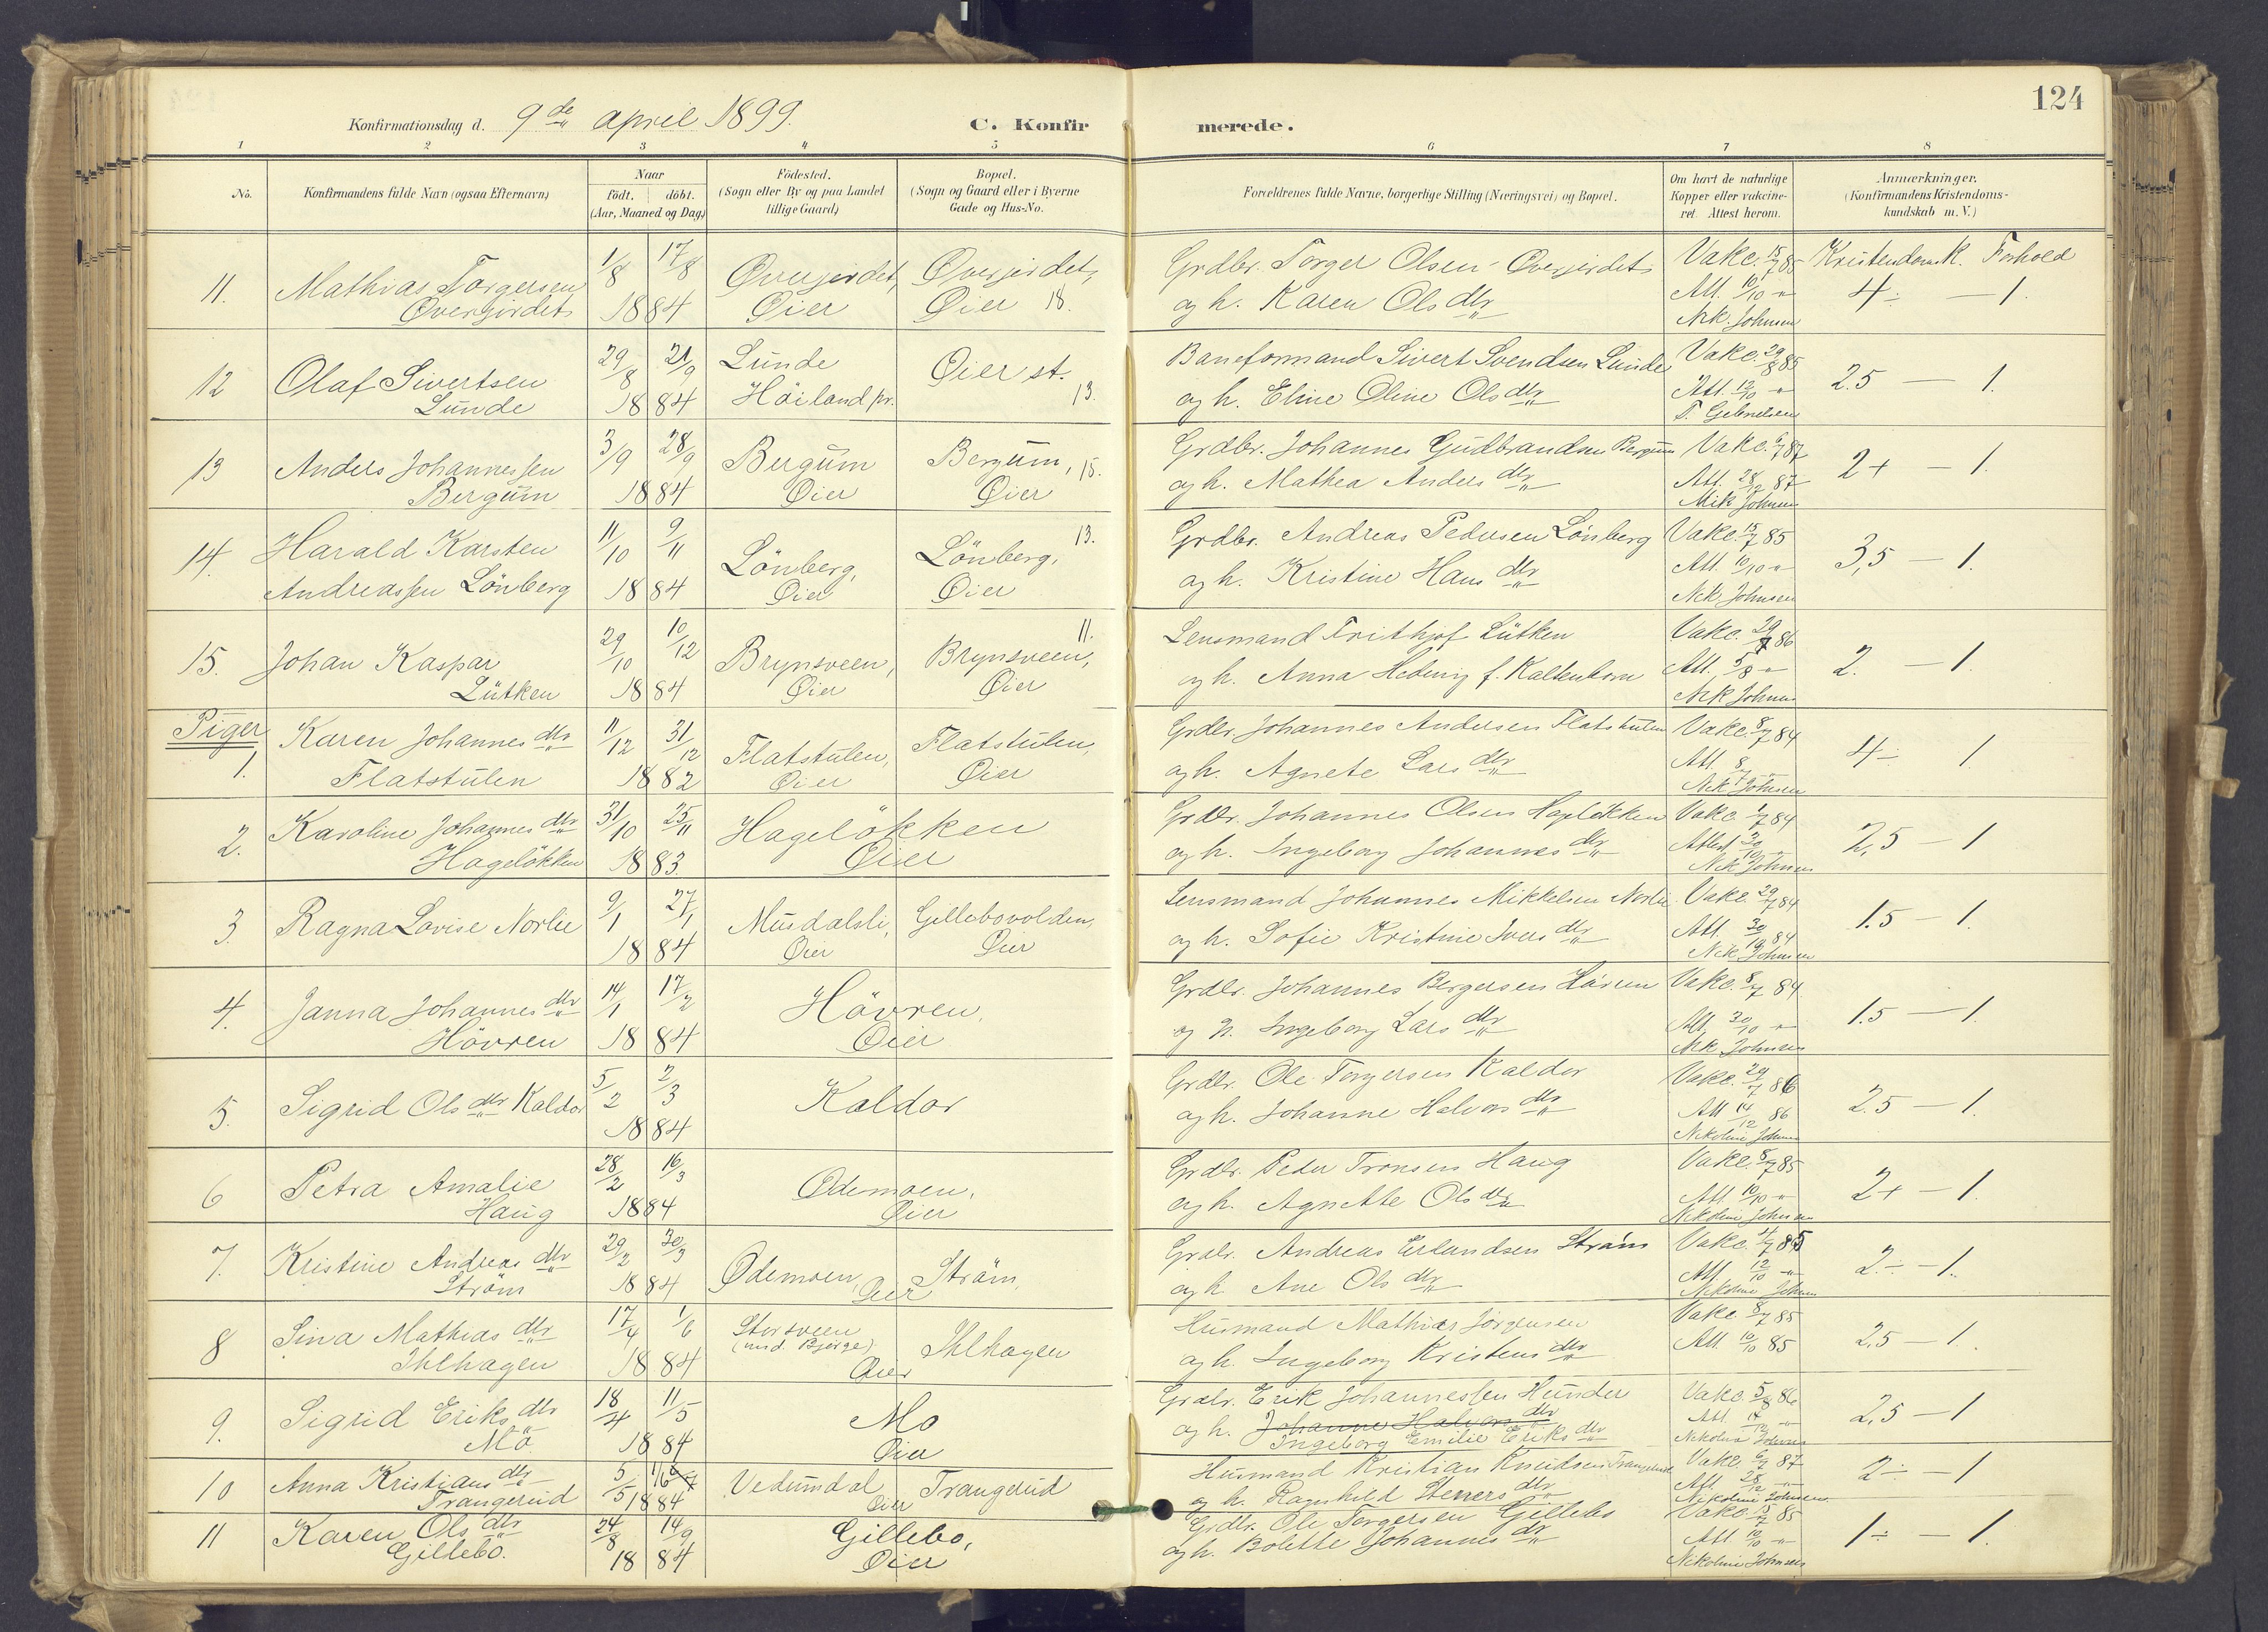 124
Konfirmationsdag d. 9de april 1899.
C. Konfirmerede.
1 2 3 4 5 6 7 8
No.
Konfirmandens fulde Navn (ogsaa Efternavn)
Naar
födt. döbt.
(Aar, Maaned og Dag)
Födested.
(Sogn eller By og paa Landet
tillige Gaard)
Bopæl.
(Sogn og Gaard eller i Byerne
Gade og Hus-No.
Forældrenes fulde Navne, borgerlige Stilling (Næringsvei) og Bopæl.
Om havt de naturlige
Kopper eller vakcine-
ret. Attest herom.
Anmærkninger.
(Konfirmandens Kristendoms-
kundskab m. V.)
11. Mathias Torgersen
Overgjerdet
1/8 17/8
1884
Øvergjerdet,
Øier
Øvergjerdet,
Øier 18.
Grdbr. Torger Olsen Overgjerdet
og h. Karen Olsdtr
Vakc. 15/7 85
Att. 10/10 "
Nik. Johnsen
Kristendomsk. Forhold
4÷ — 1.
12 Olaf Sivertsen
Lunde
29/8 21/9
1884
Lunde
Höiland pr.
Øier st.
13.
Baneformand Sivert Svendsen Lunde
og h. Eline Oline Olsdtr
Vakc. 29/8 85
Att. 12/10 "
T. Gabrielsen
2.5 — 1.
13 Anders Johannessen
Bergum
3/9 28/9
1884
Bergum
Øier
Bergum, 15.
Øier
Grdbr. Johannes Gudbrandsen Bergum
og h. Mathea Andersdtr
Vakc. 6/7 87
Att. 28/12 87
Nik Johnsen
2+ — 1.
14. Harald Karsten
Andreassen Lönberg
11/10 9/11
1884
Lönberg,
Øier
13.
Lönberg,
Øier
Grdbr. Andreas Pedersen Lönberg
og h. Kristine Hansdtr
Vakc. 15/7 85
Att. 10/10 "
Nik. Johnsen
3,5 — 1.
15. Johan Kaspar
Lütken
29/10 10/12
1884
Brynsveen,
Øier
11.
Brynsveen,
Øier
Lensmand Frithjof Lütken
og h. Anna Hedevig f. Kaltenborn
Vakc. 29/7 86
Att. 5/8 "
Nik Johnsen
2. — 1.
Piger
1. Karen Johannesdtr
Flatstulen
11/12 31/12
1882
Flatstulen,
Øier
Flatstulen,
Øier
Grdbr. Johannes Andersen Flatstulen
og h. Agnete Larsdtr
Vakc. 8/7 84
Att. 8/7 "
Nik Johnsen
4÷ 1
2. Karoline Johannesdtr
Hagelökken
31/10 25/11
1883.
Hagelökken
Øier
Grdbr. Johannes Olsen Hagelökken
og h. Ingeborg Johannesdtr
Vakc. 1/7 84
Attest 30/10 "
Nik Johnsen
2,5 — 1
3. Ragna Lovise Norlie
9/1 27/1
1884
Musdalsli,
Øier
Gillebovolden,
Øier
Lensmand Johannes Mikkelsen Norlie
og h. Sofie Kristine Iversdtr
Vakc. 29/7 84
Att. 30/10 84
Nik Johnsen
1.5 — 1.
4. Janna Johannesdtr
Hövren
14/1 17/2
1884
Hövren,
Øier
Grdbr. Johannes Bergersen Hövren
og h. Ingeborg Larsdtr
Vakc. 8/7 84
Att. 30/10 "
Nik Johnsen
1.5 — 1.
5. Sigrid Olsdtr Kaldor
5/2 2/3
1884
Kaldor
Grdbr. Ole Torgersen Kaldor
og h. Johanne Halvorsdtr
Vakc. 29/7 86
Att 14/12 86
Nikoline Johnsen
2.5 — 1.
6 Petra Amalie
Haug
28/2 16/3
1884
Ødemoen,
Øier
Grdbr. Peder Tronsen Haug
og h. Agnethe Olsdtr
Vakc. 8/7 85
Att. 10/10 "
Nikoline Johnsen
2+ — 1.
7. Kristine Andreasdtr
Ström
29/2 30/3
1884
Ødemoen, Øier
Ström,
Grdbr. Andreas Erlandsen Ström
og h. Ane Olsdtr
Vakc. 11/7 85
Att. 12/10 "
Nikoline Johnsen
2÷ — 1.
8 Sina Mathiasdtr
Ihlhagen
17/4 1/6
1884
Storsveen
(und. Bjørge)
Øier
Ihlhagen
Husmand Mathias Jörgensen
og h. Ingeborg Kristensdtr
Vakc 8/7 85
Att. 10/10 85
2,5 — 1.
9. Sigrid Eriksdtr
Mo
18/4 11/5
1884
Mo
Øier
Grdbr. Erik Johannessen Hunder
og h. Johanne Halvorsdtr
Ingeborg Emilie Eriksdtr
Vakc. 5/8 86
Att. 14/12 "
Nikoline Johnsen
2,5 — 1
10 Anna Kristiansdtr
Trangerud
5/5 1/6
1884
Vedumdal
Øier
Trangerud
Husmand Kristian Knudsen Trangerud
og h. Ragnhild Stenersdtr
Vakc. 6/7 87
Att. 28/12 "
Nikoline Johnsen
2÷ — 1
11 Karen Olsdtr
Gillebo.
24/8 14/9
1884
Gillebo,
Øier
Grdbr. Ole Torgersen Gillebo
og h. Bolette Johannesdtr
Vakc. 15/7 85
Att. 10/10 "
Nikoline Johnsen
1÷ — 1.